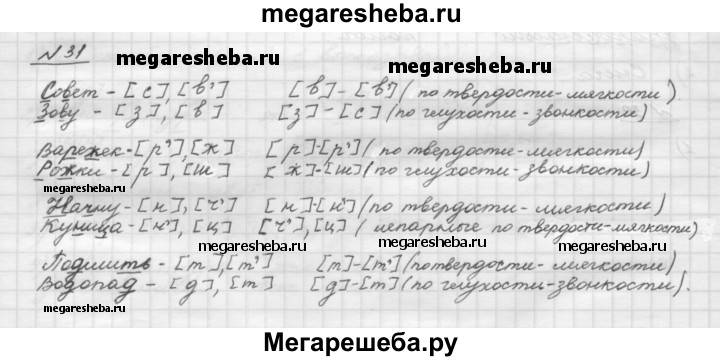 megaresheba.ru
N 31
megaresheba.ru
megaresheba.ru
Совет - [с], [в'] [в] - [в'] (по твердости - мягкости)
Зову - [з], [в] [з] - [с] (по глухости - звонкости)
Варежек - [р'], [ж] [р]-[р'] (по твердости - мягкости)
Рожки - [р], [ш] [ж]-[ш] (по глухости - звонкости)
megaresheba.ru
megaresheba.ru
Начну - [н], [ч'] [н]-[н'] (по твердости - мягкости)
Куница - [н'], [ц] [ч'], [ц] (непарные по твердости - мягкости)
megaresheba.ru
megaresheba.ru
Подшить - [т], [т'] [т]-[т'] (по твердости - мягкости)
Водопад - [д], [т] [д]-[т] (по глухости - звонкости).
Мегарешеба.ру